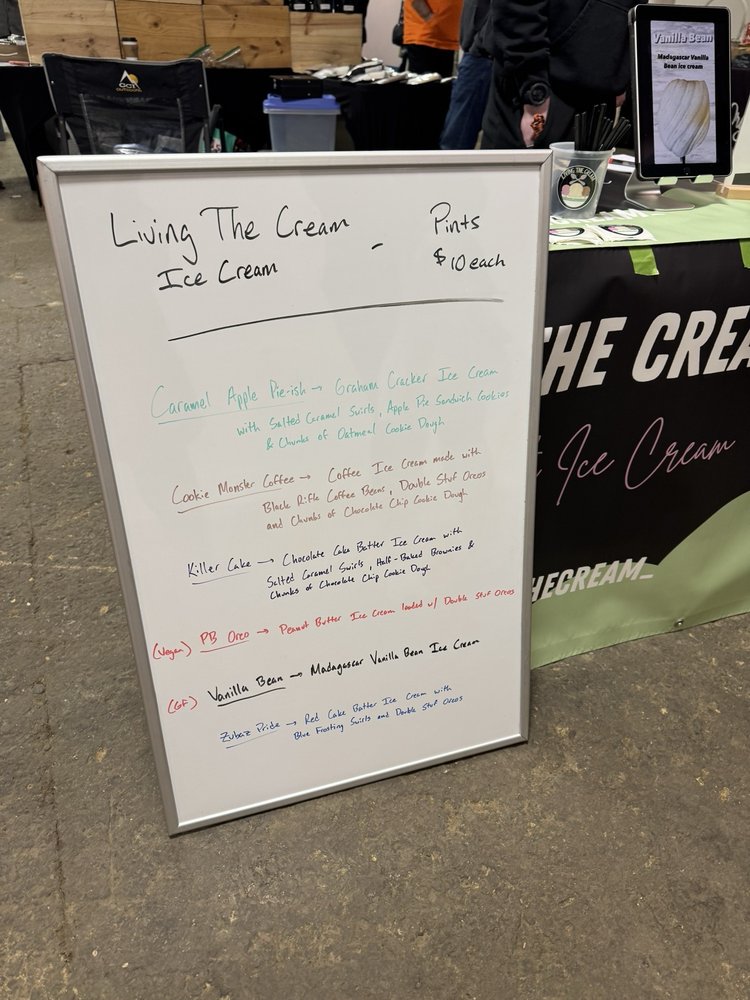 GCI
OUTDOOR
Vanilla Bean
Madagascar Vanilla
Bean ice cream
LIVING THE CREAM
Living The Cream - Pints
Ice Cream $10 each
Caramel Apple Pie-ish → Graham Cracker Ice Cream
with Salted Caramel Swirls, Apple Pie Sandwich Cookies
& Chunks of Oatmeal Cookie Dough
Cookie Monster Coffee → Coffee Ice Cream made with
Black Rifle Coffee Beans, Double Stuf Oreos
and Chunks of Chocolate Chip Cookie Dough
Killer Cake → Chocolate Cake Batter Ice Cream with
Salted Caramel Swirls, Half-Baked Brownies &
Chunks of Chocolate Chip Cookie Dough
(Vegan) PB Oreo → Peanut Butter Ice Cream loaded w/ Double Stuf Oreos
(GF) Vanilla Bean → Madagascar Vanilla Bean Ice Cream
Zubaz Pride → Red Cake Batter Ice Cream with
Blue Frosting Swirls and Double Stuf Oreos
THE CREA
t Ice Cream
THECREAM_